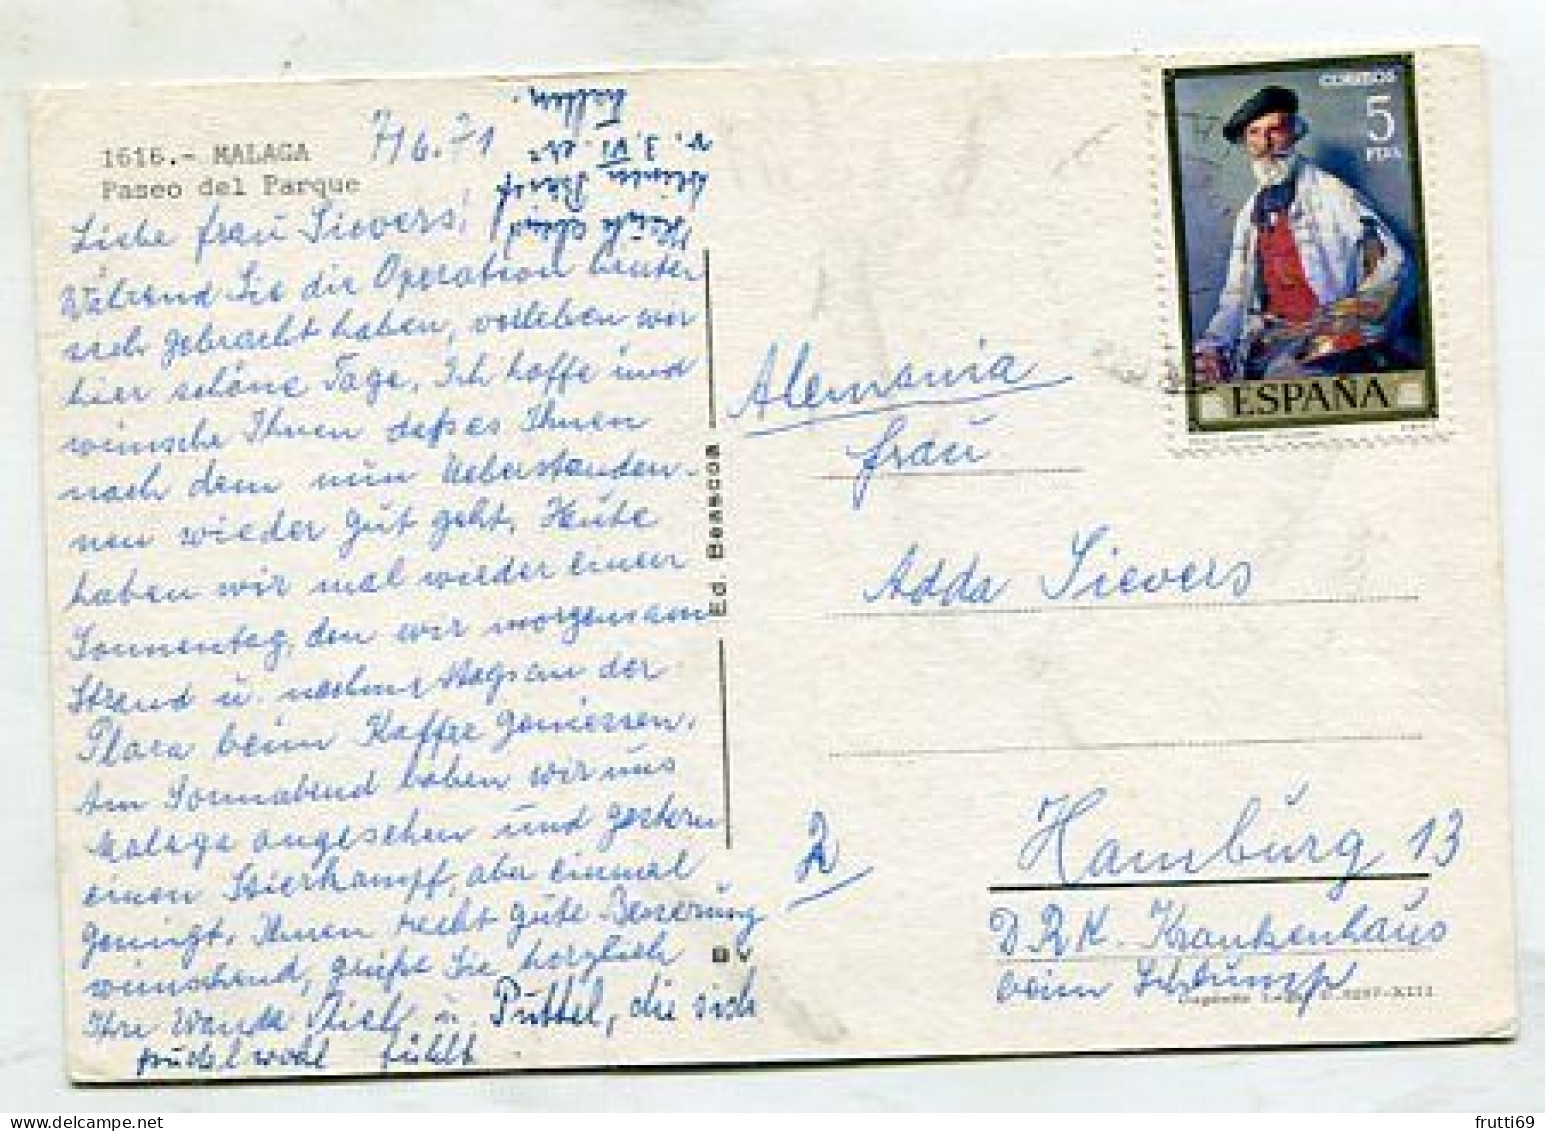 1616.- MALAGA
Paseo del Parque
7/6.71
Liebe Frau Sievers!
Während Sie die Operation hinter
sich gebracht haben, verleben wir
hier schöne Tage. Ich hoffe und
wünsche Ihnen daß es Ihnen
nach dem nun Ueberstanden-
nen wieder gut geht. Heute
haben wir mal wieder einen
Sonnentag, den wir morgens am
Strand u. nachmittags an der
Plaza beim Kaffee geniessen.
Am Sonnabend haben wir uns
Malaga angesehen und gestern
einen Stierkampf, aber einmal
genügt. Ihnen recht gute Besserung
wünschend, grüße Sie herzlich
Ihre Wanda u. Püttel, die sich
pudelwohl fühlt
v. 3. VI. erhalten.
Ed. Beascoa
BV
CORREOS
5
PTAS
ESPAÑA
Alemania
Frau
Adda Sievers
2
Hamburg 13
D.R.K. Krankenhaus
beim Schlump